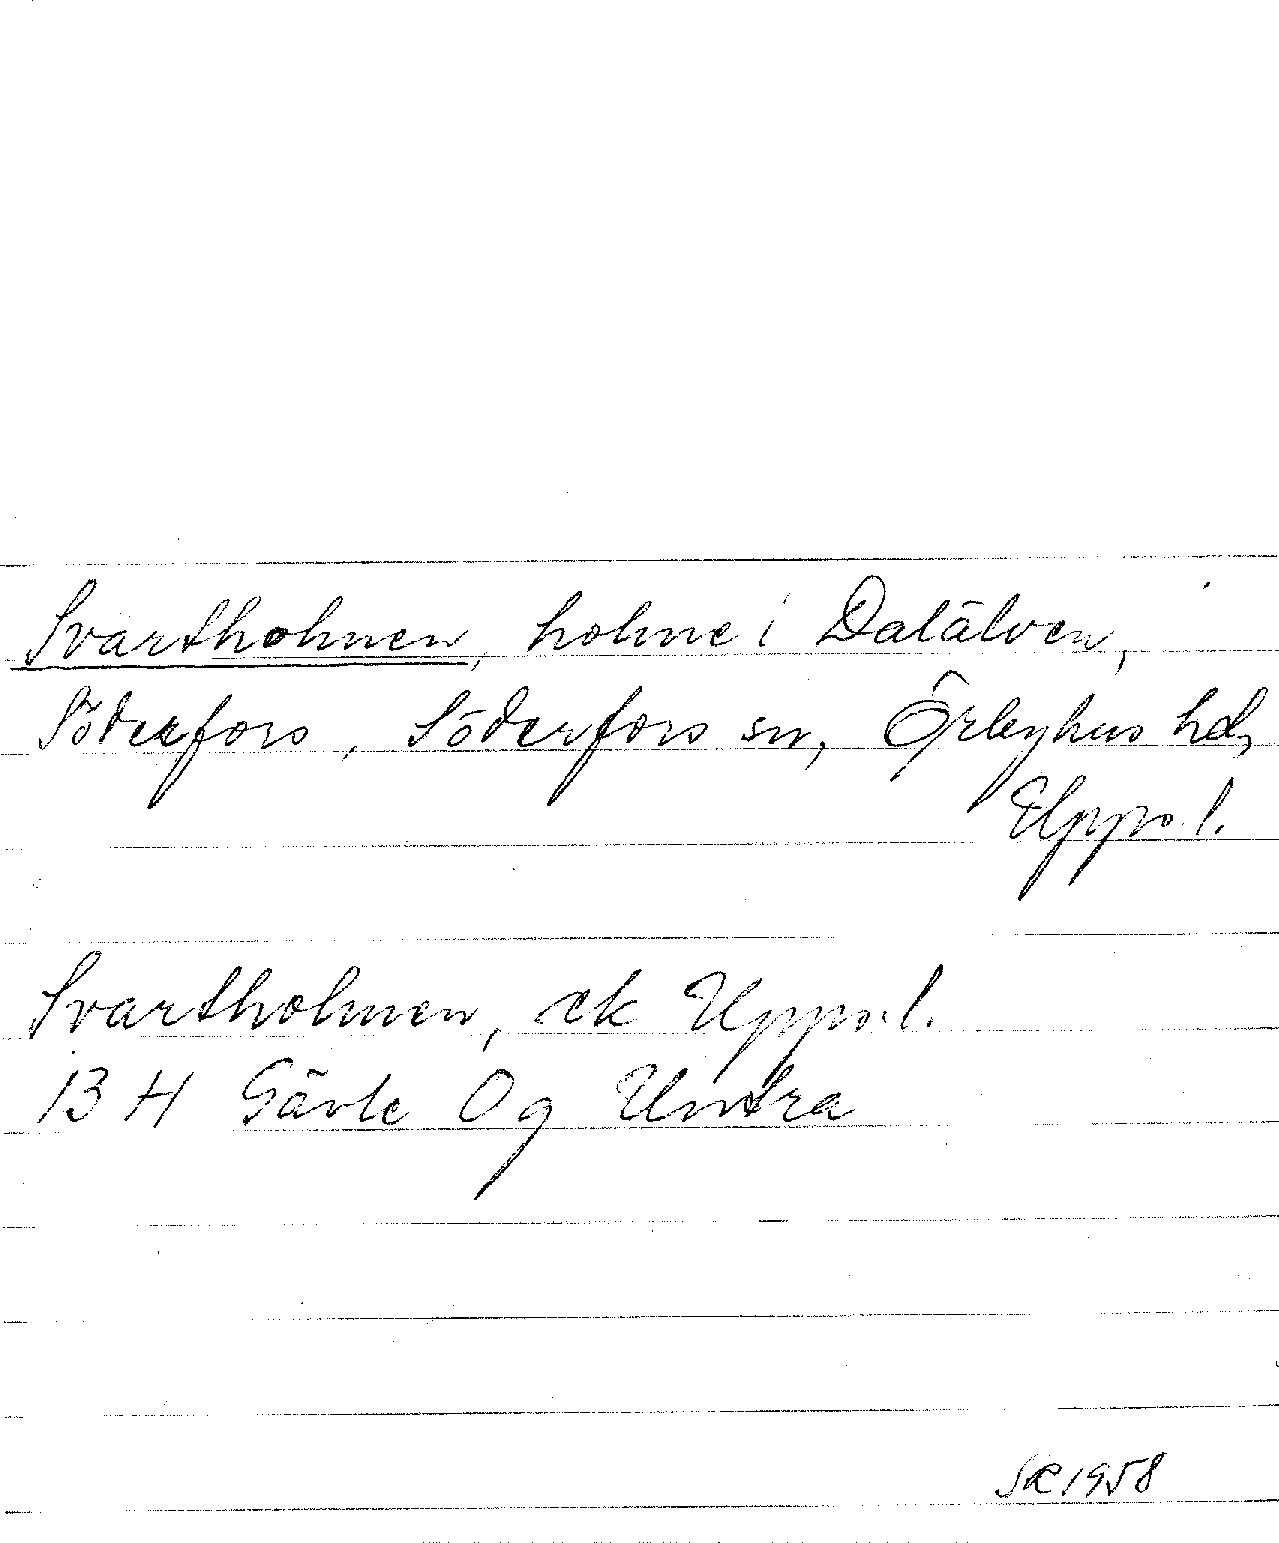 Svartholmen, holme i Dalälven,
Söderfors, Söderfors sn, Örbyhus hd,
Upps. l.
Svartholmen, ek Upps. l.
13 H Gävle Og Untra
SR 1958